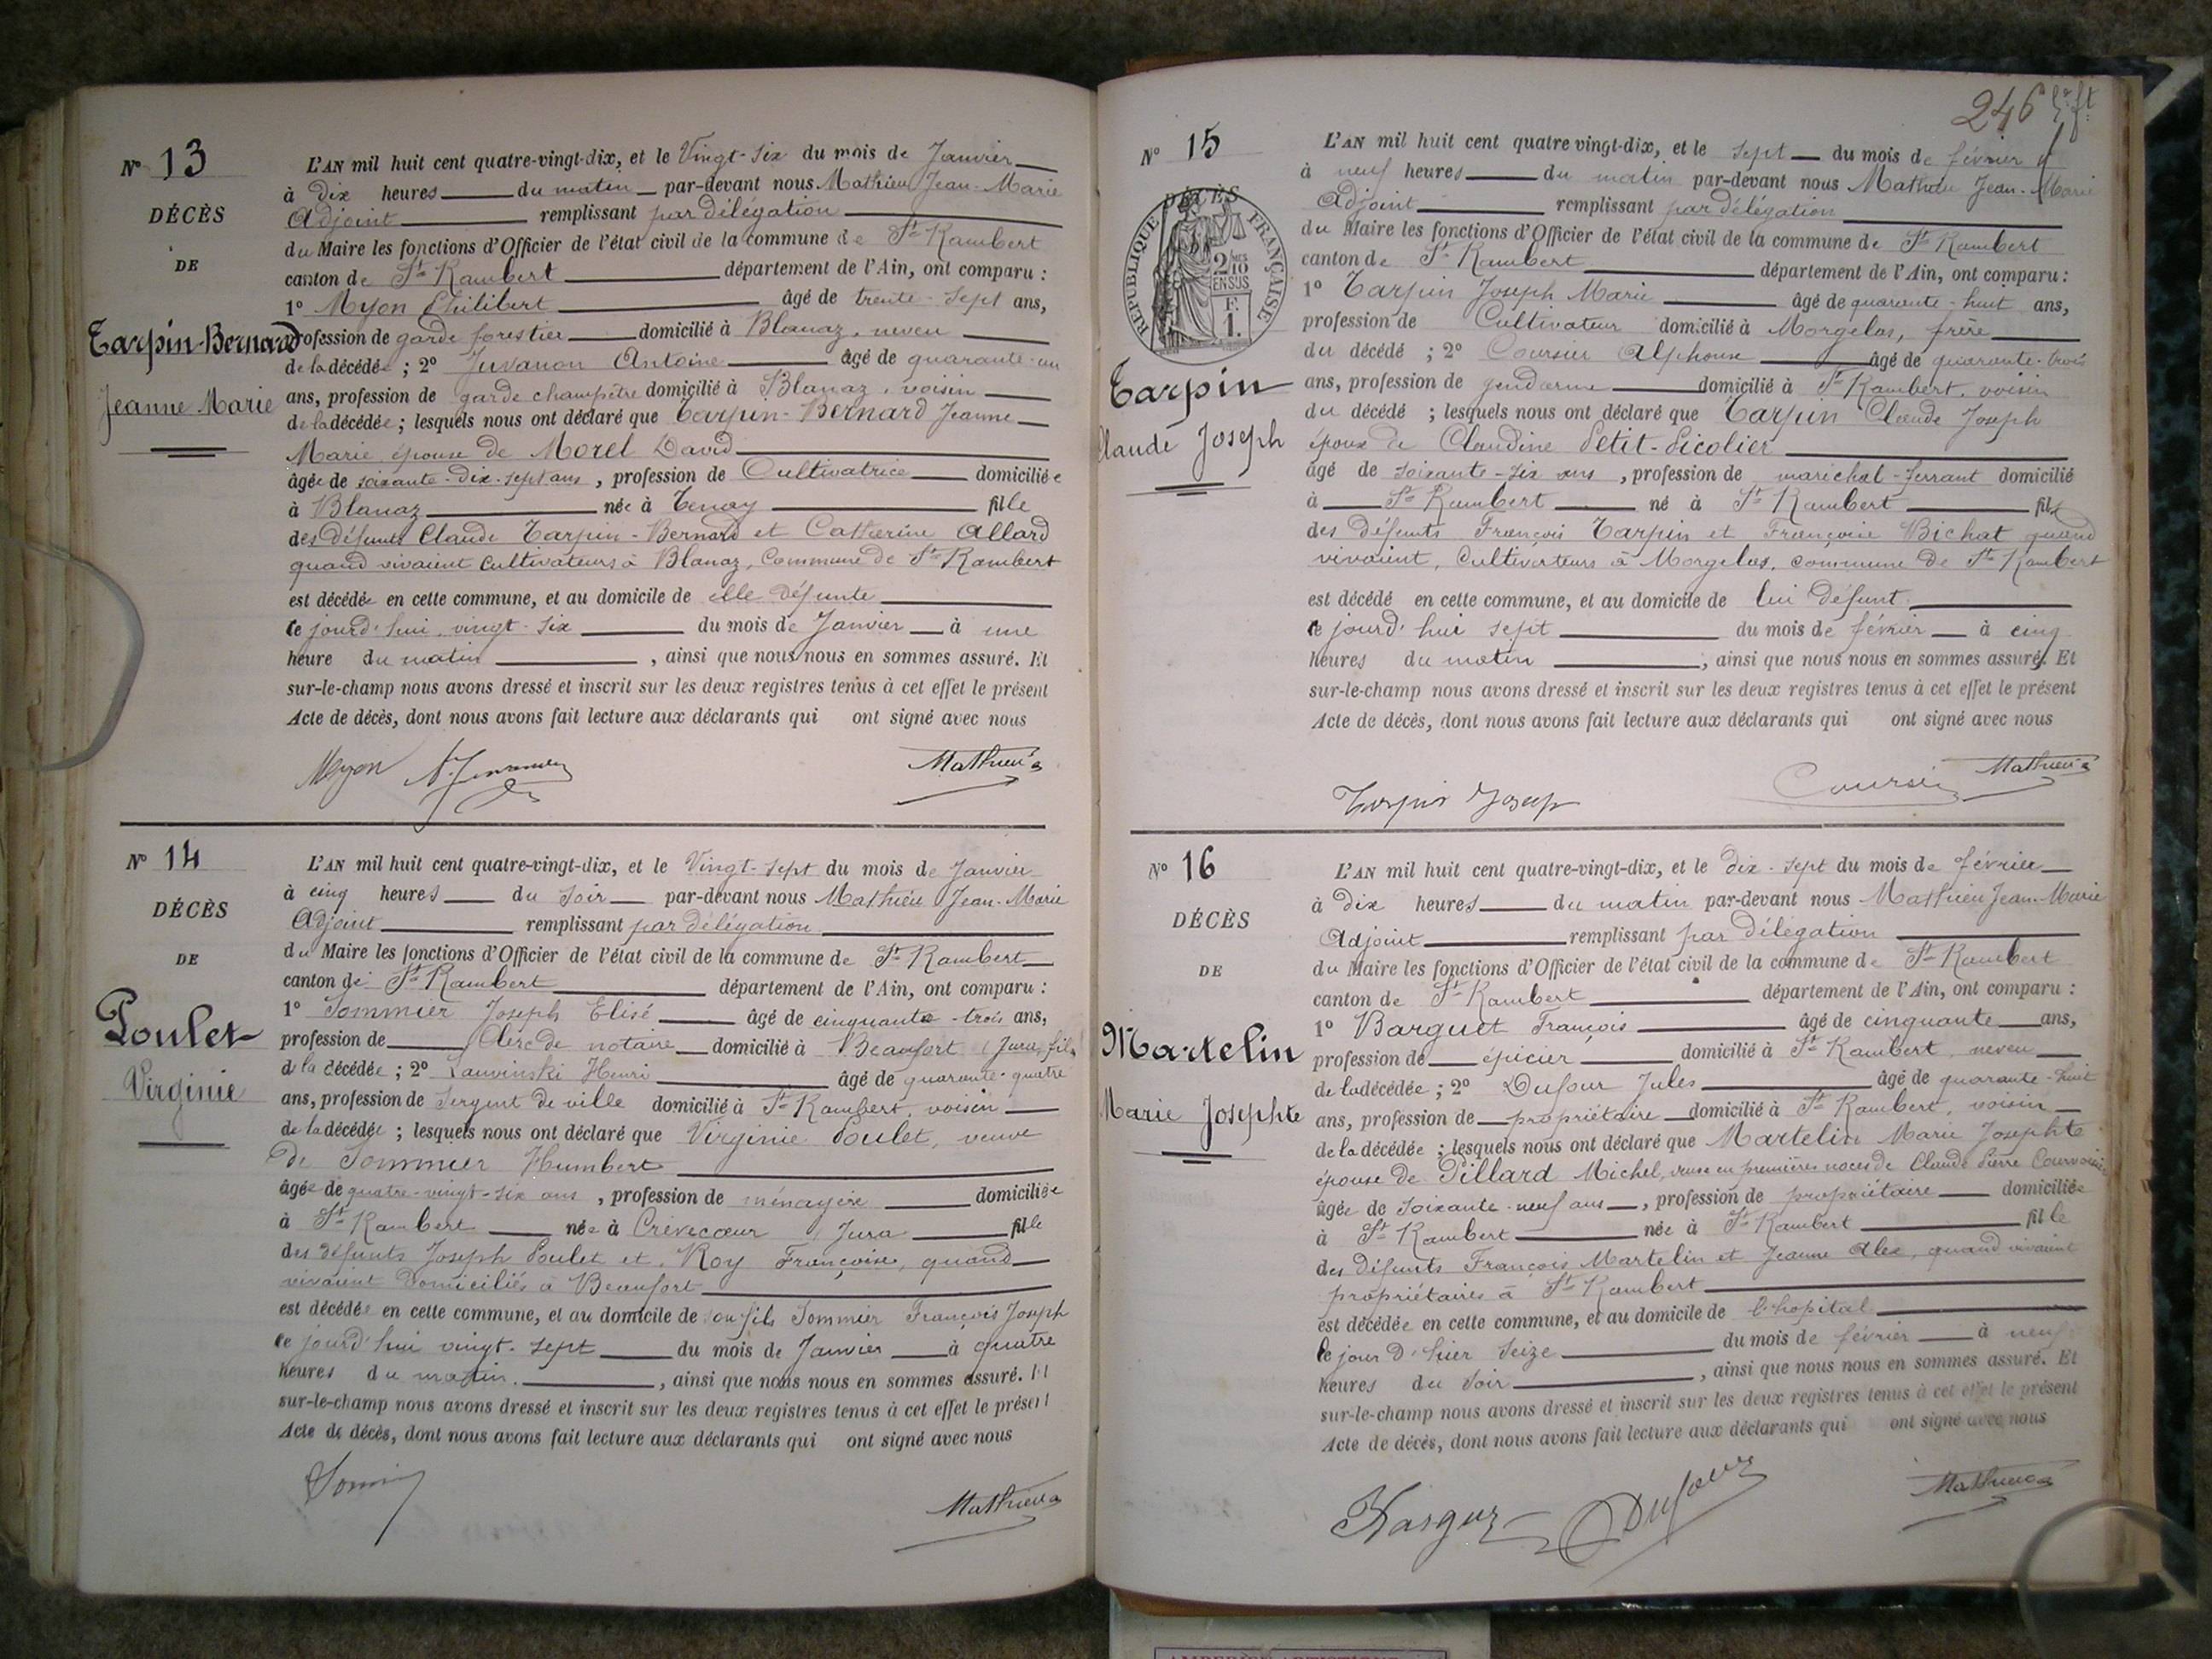 N° 13
DÉCÈS
DE
Tarpin-Bernard
Jeanne Marie
L'AN mil huit cent quatre-vingt-dix, et le Vingt-six du mois de Janvier
à dix heures du matin par-devant nous Mathieu Jean-Marie
Adjoint remplissant par délégation
du Maire les fonctions d'Officier de l'état civil de la commune de St Rambert
canton de St Rambert département de l'Ain, ont comparu :
1° Myon Philibert âgé de trente-sept ans,
profession de garde forestier domicilié à Blanaz, neveu
de la décédée ; 2° Juvanon Antoine âgé de quarante-un
ans, profession de garde champêtre domicilié à Blanaz, voisin
de la décédée ; lesquels nous ont déclaré que Tarpin-Bernard Jeanne
Marie épouse de Morel David
âgée de soixante-dix-sept ans, profession de Cultivatrice domiciliée
à Blanaz née à Tenay fille
des défunts Claude Tarpin-Bernard et Catherine Allard
quand vivaient cultivateurs à Blanaz, Commune de St Rambert
est décédée en cette commune, et au domicile de elle défunte
ce jourd'hui vingt-six du mois de Janvier à une
heure du matin, ainsi que nous nous en sommes assuré. Et
sur-le-champ nous avons dressé et inscrit sur les deux registres tenus à cet effet le présent
Acte de décès, dont nous avons fait lecture aux déclarants qui ont signé avec nous
Myon Mathieu
N° 14
DÉCÈS
DE
Poulet
Virginie
L'AN mil huit cent quatre-vingt-dix, et le Vingt-sept du mois de Janvier
à cinq heures du soir par-devant nous Mathieu Jean-Marie
Adjoint remplissant par délégation
du Maire les fonctions d'Officier de l'état civil de la commune de St Rambert
canton de St Rambert département de l'Ain, ont comparu :
1° Sommier Joseph Elisé âgé de cinquante-trois ans,
profession de Clerc de notaire domicilié à Beaufort (Jura, fils
de la décédée ; 2° Henri âgé de quarante-quatre
ans, profession de Sergent de ville domicilié à St Rambert, voisin
de la décédée ; lesquels nous ont déclaré que Virginie Poulet, veuve
de Sommier Humbert
âgée de quatre-vingt-six ans, profession de ménagère domiciliée
à St Rambert née à Crèvecœur Jura fille
des défunts Joseph Poulet et Roy Françoise, quand
vivaient domiciliés à Beaufort
est décédée en cette commune, et au domicile de son fils Sommier François Joseph
ce jourd'hui vingt-sept du mois de Janvier à quatre
heures du matin, ainsi que nous nous en sommes assuré. Et
sur-le-champ nous avons dressé et inscrit sur les deux registres tenus à cet effet le présent
Acte de décès, dont nous avons fait lecture aux déclarants qui ont signé avec nous
Mathieu
246
N° 15
DÉCÈS
RÉPUBLIQUE FRANÇAISE
2/10 EN SUS
F. 1.
Tarpin
Claude Joseph
L'AN mil huit cent quatre vingt-dix, et le sept du mois de février
à neuf heures du matin par-devant nous Mathieu Jean-Marie
Adjoint remplissant par délégation
du Maire les fonctions d'Officier de l'état civil de la commune de St Rambert
canton de St Rambert département de l'Ain, ont comparu :
1° Tarpin Joseph Marie âgé de quarante-huit ans,
profession de Cultivateur domicilié à Morgelas, frère
du décédé ; 2° Coursier Alphonse âgé de quarante-trois
ans, profession de gendarme domicilié à St Rambert, voisin
du décédé ; lesquels nous ont déclaré que Tarpin Claude Joseph
époux de Claudine Petit-Picolier
âgé de soixante-six ans, profession de marichal-ferrant domicilié
à St Rambert né à St Rambert fils
des défunts François Tarpin et Françoise Bichat quand
vivaient, Cultivateurs à Morgelas, commune de St Rambert
est décédé en cette commune, et au domicile de lui défunt
ce jourd'hui sept du mois de février à cinq
heures du matin, ainsi que nous nous en sommes assuré. Et
sur-le-champ nous avons dressé et inscrit sur les deux registres tenus à cet effet le présent
Acte de décès, dont nous avons fait lecture aux déclarants qui ont signé avec nous
Tarpin Josep Coursier Mathieu
N° 16
DÉCÈS
DE
Martelin
Marie Josephte
L'AN mil huit cent quatre-vingt-dix, et le dix-sept du mois de février
à dix heures du matin par-devant nous Mathieu Jean-Marie
Adjoint remplissant par délégation
du Maire les fonctions d'Officier de l'état civil de la commune de St Rambert
canton de St Rambert département de l'Ain, ont comparu :
1° Barguet François âgé de cinquante ans,
profession de épicier domicilié à St Rambert, neveu
de la décédée ; 2° Dufour Jules âgé de quarante-huit
ans, profession de propriétaire domicilié à St Rambert, voisin
de la décédée ; lesquels nous ont déclaré que Martelin Marie Josephte
épouse de Pillard Michel, veuve en premières noces de Claude Pierre
âgée de soixante-neuf ans, profession de propriétaire domiciliée
à St Rambert née à St Rambert fille
des défunts François Martelin et Jeanne Alex, quand vivaient
propriétaires à St Rambert
est décédée en cette commune, et au domicile de l'hopital
le jour d'hier seize du mois de février à neuf
heures du soir, ainsi que nous nous en sommes assuré. Et
sur-le-champ nous avons dressé et inscrit sur les deux registres tenus à cet effet le présent
Acte de décès, dont nous avons fait lecture aux déclarants qui ont signé avec nous
Dufour Mathieu